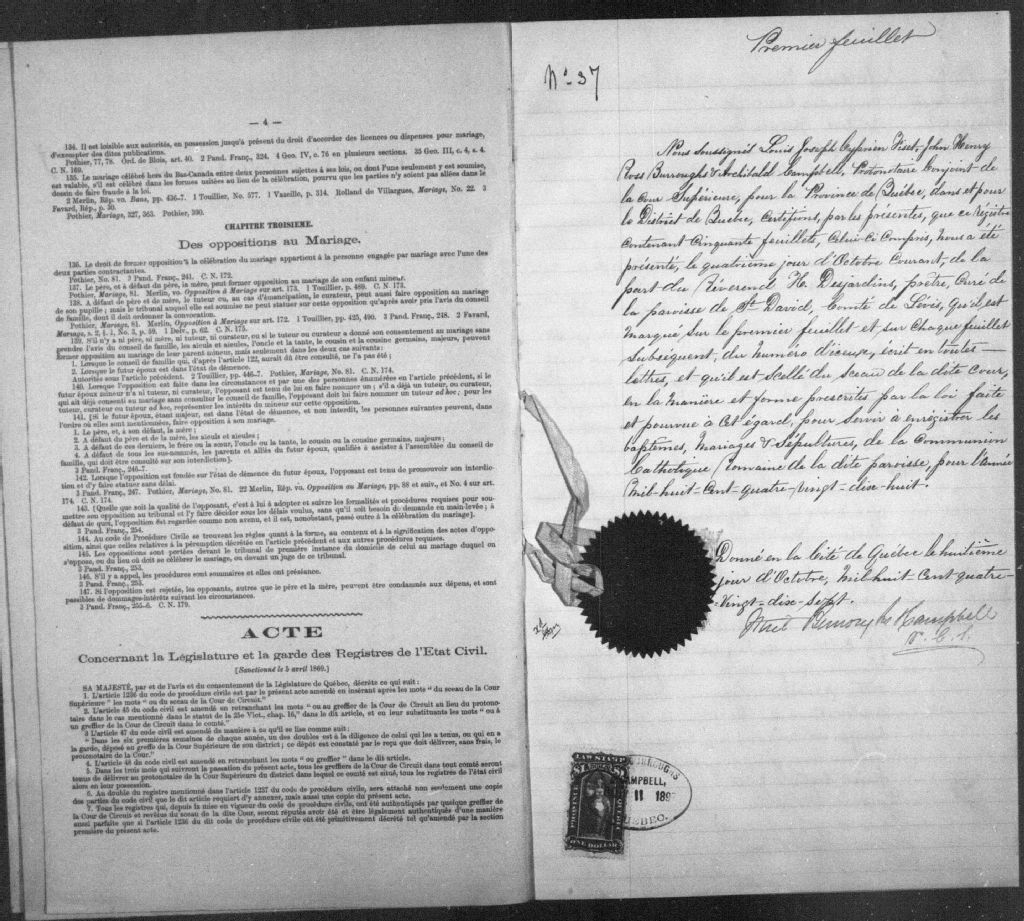 — 4 —
134. Il est loisible aux autorités, en possession jusqu'à présent du droit d'accorder des licences ou dispenses pour mariage,
d'exempter des dites publications.
Pothier, 77, 78. Ord. de Blois, art. 40. 2 Pand. Franç., 324. 4 Geo. IV, c. 76 en plusieurs sections. 35 Geo. III, c. 4, s. 4.
C. N. 169.
135. Le mariage célébré hors du Bas-Canada entre deux personnes sujettes à ses lois, ou dont l'une seulement y est soumise,
est valable, s'il est célébré dans les formes usitées au lieu de la célébration, pourvu que les parties n'y soient pas allées dans le
dessein de faire fraude à la loi.
2 Merlin, Rép. vo. Bans, pp. 436-7. 1 Touillier, No. 577. 1 Vazeille, p. 314. Rolland de Villargues, Mariage, No. 22. 3
Favard, Rép., p. 50.
Pothier, Mariage, 327, 363. Pothier, 390.
CHAPITRE TROISIEME.
Des oppositions au Mariage.
136. Le droit de former opposition à la célébration du mariage appartient à la personne engagée par mariage avec l'une des
deux parties contractantes.
Pothier, No. 81. 3 Pand. Franç., 241. C. N. 172.
137. Le père, et à défaut du père, la mère, peut former opposition au mariage de son enfant mineur.
Pothier, Mariage, 81. Merlin, vo. Opposition à Mariage sur art. 173. 1 Touillier, p. 489. C. N. 173.
138. A défaut de père et de mère, le tuteur ou, au cas d'émancipation, le curateur, peut aussi faire opposition au mariage
de son pupille; mais le tribunal auquel elle est soumise ne peut statuer sur cette opposition qu'après avoir pris l'avis du conseil
de famille, dont il doit ordonner la convocation.
Pothier, Mariage, 81. Merlin, Opposition à Mariage sur art. 172. 1 Touillier, pp. 425, 490. 3 Pand. Franç., 248. 2 Favard,
Mariage, s. 2, § 1, No. 3, p. 59. 1 Delv., p. 62. C. N. 175.
139. S'il n'y a ni père, ni mère, ni tuteur, ni curateur, ou si le tuteur ou curateur a donné son consentement au mariage sans
prendre l'avis du conseil de famille, les aïeuls et aïeules, l'oncle et la tante, le cousin et la cousine germains, majeurs, peuvent
former opposition au mariage de leur parent mineur, mais seulement dans les deux cas suivants:
1. Lorsque le conseil de famille qui, d'après l'article 122, aurait dû être consulté, ne l'a pas été;
2. Lorsque le futur époux est dans l'état de démence.
Autorités sous l'article précédent. 2 Touillier, pp. 446-7. Pothier, Mariage, No. 81. C. N. 174.
140. Lorsque l'opposition est faite dans les circonstances et par une des personnes énumérées en l'article précédent, si le
futur époux mineur n'a ni tuteur, ni curateur, l'opposant est tenu de lui en faire nommer un; s'il a déjà un tuteur, ou curateur,
qui ait déjà consenti au mariage sans consulter le conseil de famille, l'opposant doit lui faire nommer un tuteur ad hoc; pour les
tuteur, curateur ou tuteur ad hoc, représenter les intérêts du mineur sur cette opposition.
141. [Si le futur époux, étant majeur, est dans l'état de démence, et non interdit, les personnes suivantes peuvent, dans
l'ordre où elles sont mentionnées, faire opposition à son mariage.
1. Le père, et, à son défaut, la mère;
2. A défaut du père et de la mère, les aïeuls et aïeules;
3. A défaut de ces derniers, le frère ou la sœur, l'oncle ou la tante, le cousin ou la cousine germains, majeurs;
4. A défaut de tous les sus-nommés, les parents et alliés du futur époux, qualifiés à assister à l'assemblée du conseil de
famille, qui doit être consulté sur son interdiction].
3 Pand. Franç., 246-7.
142. Lorsque l'opposition est fondée sur l'état de démence du futur époux, l'opposant est tenu de promouvoir son interdic-
tion et d'y faire statuer sans délai.
3 Pand. Franç., 247. Pothier, Mariage, No. 81. 22 Merlin, Rép. vo. Opposition au Mariage, pp. 88 et suiv., et No. 4 sur art.
174. C. N. 174.
143. [Quelle que soit la qualité de l'opposant, c'est à lui à adopter et suivre les formalités et procédures requises pour sou-
mettre son opposition au tribunal et l'y faire décider sous les délais voulus, sans qu'il soit besoin de demande en main-levée; à
défaut de quoi, l'opposition est regardée comme non avenue, et il est, nonobstant, passé outre à la célébration du mariage].
3 Pand. Franç., 254.
144. Au code de Procédure Civile se trouvent les règles quant à la forme, au contenu et à la signification des actes d'oppo-
sition, ainsi que celles relatives à la péremption décrétée en l'article précédent et aux autres procédures requises.
145. Les oppositions sont portées devant le tribunal de première instance du domicile de celui au mariage duquel on
s'oppose, ou du lieu où doit se célébrer le mariage, ou devant un juge de ce tribunal.
3 Pand. Franç., 253.
146. S'il y a appel, les procédures sont sommaires et elles ont préséance.
3 Pand. Franç., 255.
147. Si l'opposition est rejetée, les opposants, autres que le père et la mère, peuvent être condamnés aux dépens, et sont
passibles de dommages-intérêts suivant les circonstances.
3 Pand. Franç., 255-6. C. N. 179.
ACTE
Concernant la Législature et la garde des Registres de l'Etat Civil.
[Sanctionné le 5 avril 1869.]
SA MAJESTÉ, par et de l'avis et du consentement de la Législature de Québec, décrète ce qui suit:
1. L'article 1236 du code de procédure civile est par le présent acte amendé en insérant après les mots " du sceau de la Cour
Supérieure " les mots " ou du sceau de la Cour de Circuit."
2. L'article 45 du code civil est amendé en retranchant les mots " ou au greffier de la Cour de Circuit au lieu du protono-
taire dans le cas mentionné dans le statut de la 25e Vict., chap. 16," dans le dit article, et en leur substituants les mots " ou à
un greffier de la Cour de Circuit dans le comté."
3 L'article 47 du code civil est amendé de manière à ce qu'il se lise comme suit:
" Dans les six premières semaines de chaque année, un des doubles est à la diligence de celui qui les a tenus, ou qui en a
la garde, déposé au greffe de la Cour Supérieure de son district; ce dépôt est constaté par le reçu que doit délivrer, sans frais, le
protonotaire de la Cour."
4. L'article 48 du code civil est amendé en retranchant les mots " ou greffier " dans le dit article.
5. Dans les trois mois qui suivront la passation du présent acte, tous les greffiers de la Cour de Circuit dans tout comté seront
tenus de délivrer au protonotaire de la Cour Supérieure du district dans lequel ce comté est situé, tous les registres de l'état civil
alors en leur possession.
6. Au double du registre mentionné dans l'article 1237 du code de procédure civile, sera attaché non seulement une copie
des parties du code civil que le dit article requiert d'y annexer, mais aussi une copie du présent acte.
7. Tous les registres qui, depuis la mise en vigueur du code de procédure civils, ont été authentiqués par quelque greffier de
la Cour de Circuit et revêtus du sceau de la dite Cour, seront réputés avoir été et être légalement authentiqués d'une manière
aussi parfaite que si l'article 1236 du dit code de procédure civile eût été primitivement décrété tel qu'amendé par la section
première du présent acte.
Premier feuillet
No 37
Nous soussignés Louis Joseph Cyprien Fiset, John Henry
Ross Burroughs & Archibald Campbell, Protonotaire Conjoint de
la Cour Supérieure, pour la Province de Québec, dans et pour
le District de Québec, Certifions, par les présentes, que ce Régistre
contenant Cinquante feuillets, Celui-Ci Compris, nous a été
présenté, le quatrième jour d'Octobre Courant, de la
part du Révérend H. Desjardins, prêtre, Curé de
la paroisse de St. David, Comté de Lévis, qu'il est
marqué sur le premier feuillet et sur Chaque feuillet
subséquent, du numéro d'iceux, écrit en toutes
lettres, et qu'il est scellé du sceau de la dite Cour,
en la manière et forme prescrites par la loi faite
et pourvue à Cet égard, pour servir à enrégistrer les
baptêmes, Mariages & Sépultures, de la Communion
Catholique Romaine de la dite paroisse, pour l'Année
Mil-huit-Cent-quatre-vingt-dix-huit.
Donné en la Cité de Québec le huitième
jour d'Octobre, Mil-huit-Cent-quatre-
-Vingt-dix-sept.
Fiset Burroughs & Campbell
P. C. S.
LAW STAMP
$1 $1
PROVINCE QUEBEC
ONE DOLLAR
BURROUGHS
CAMPBELL,
11 189
QUEBEC.